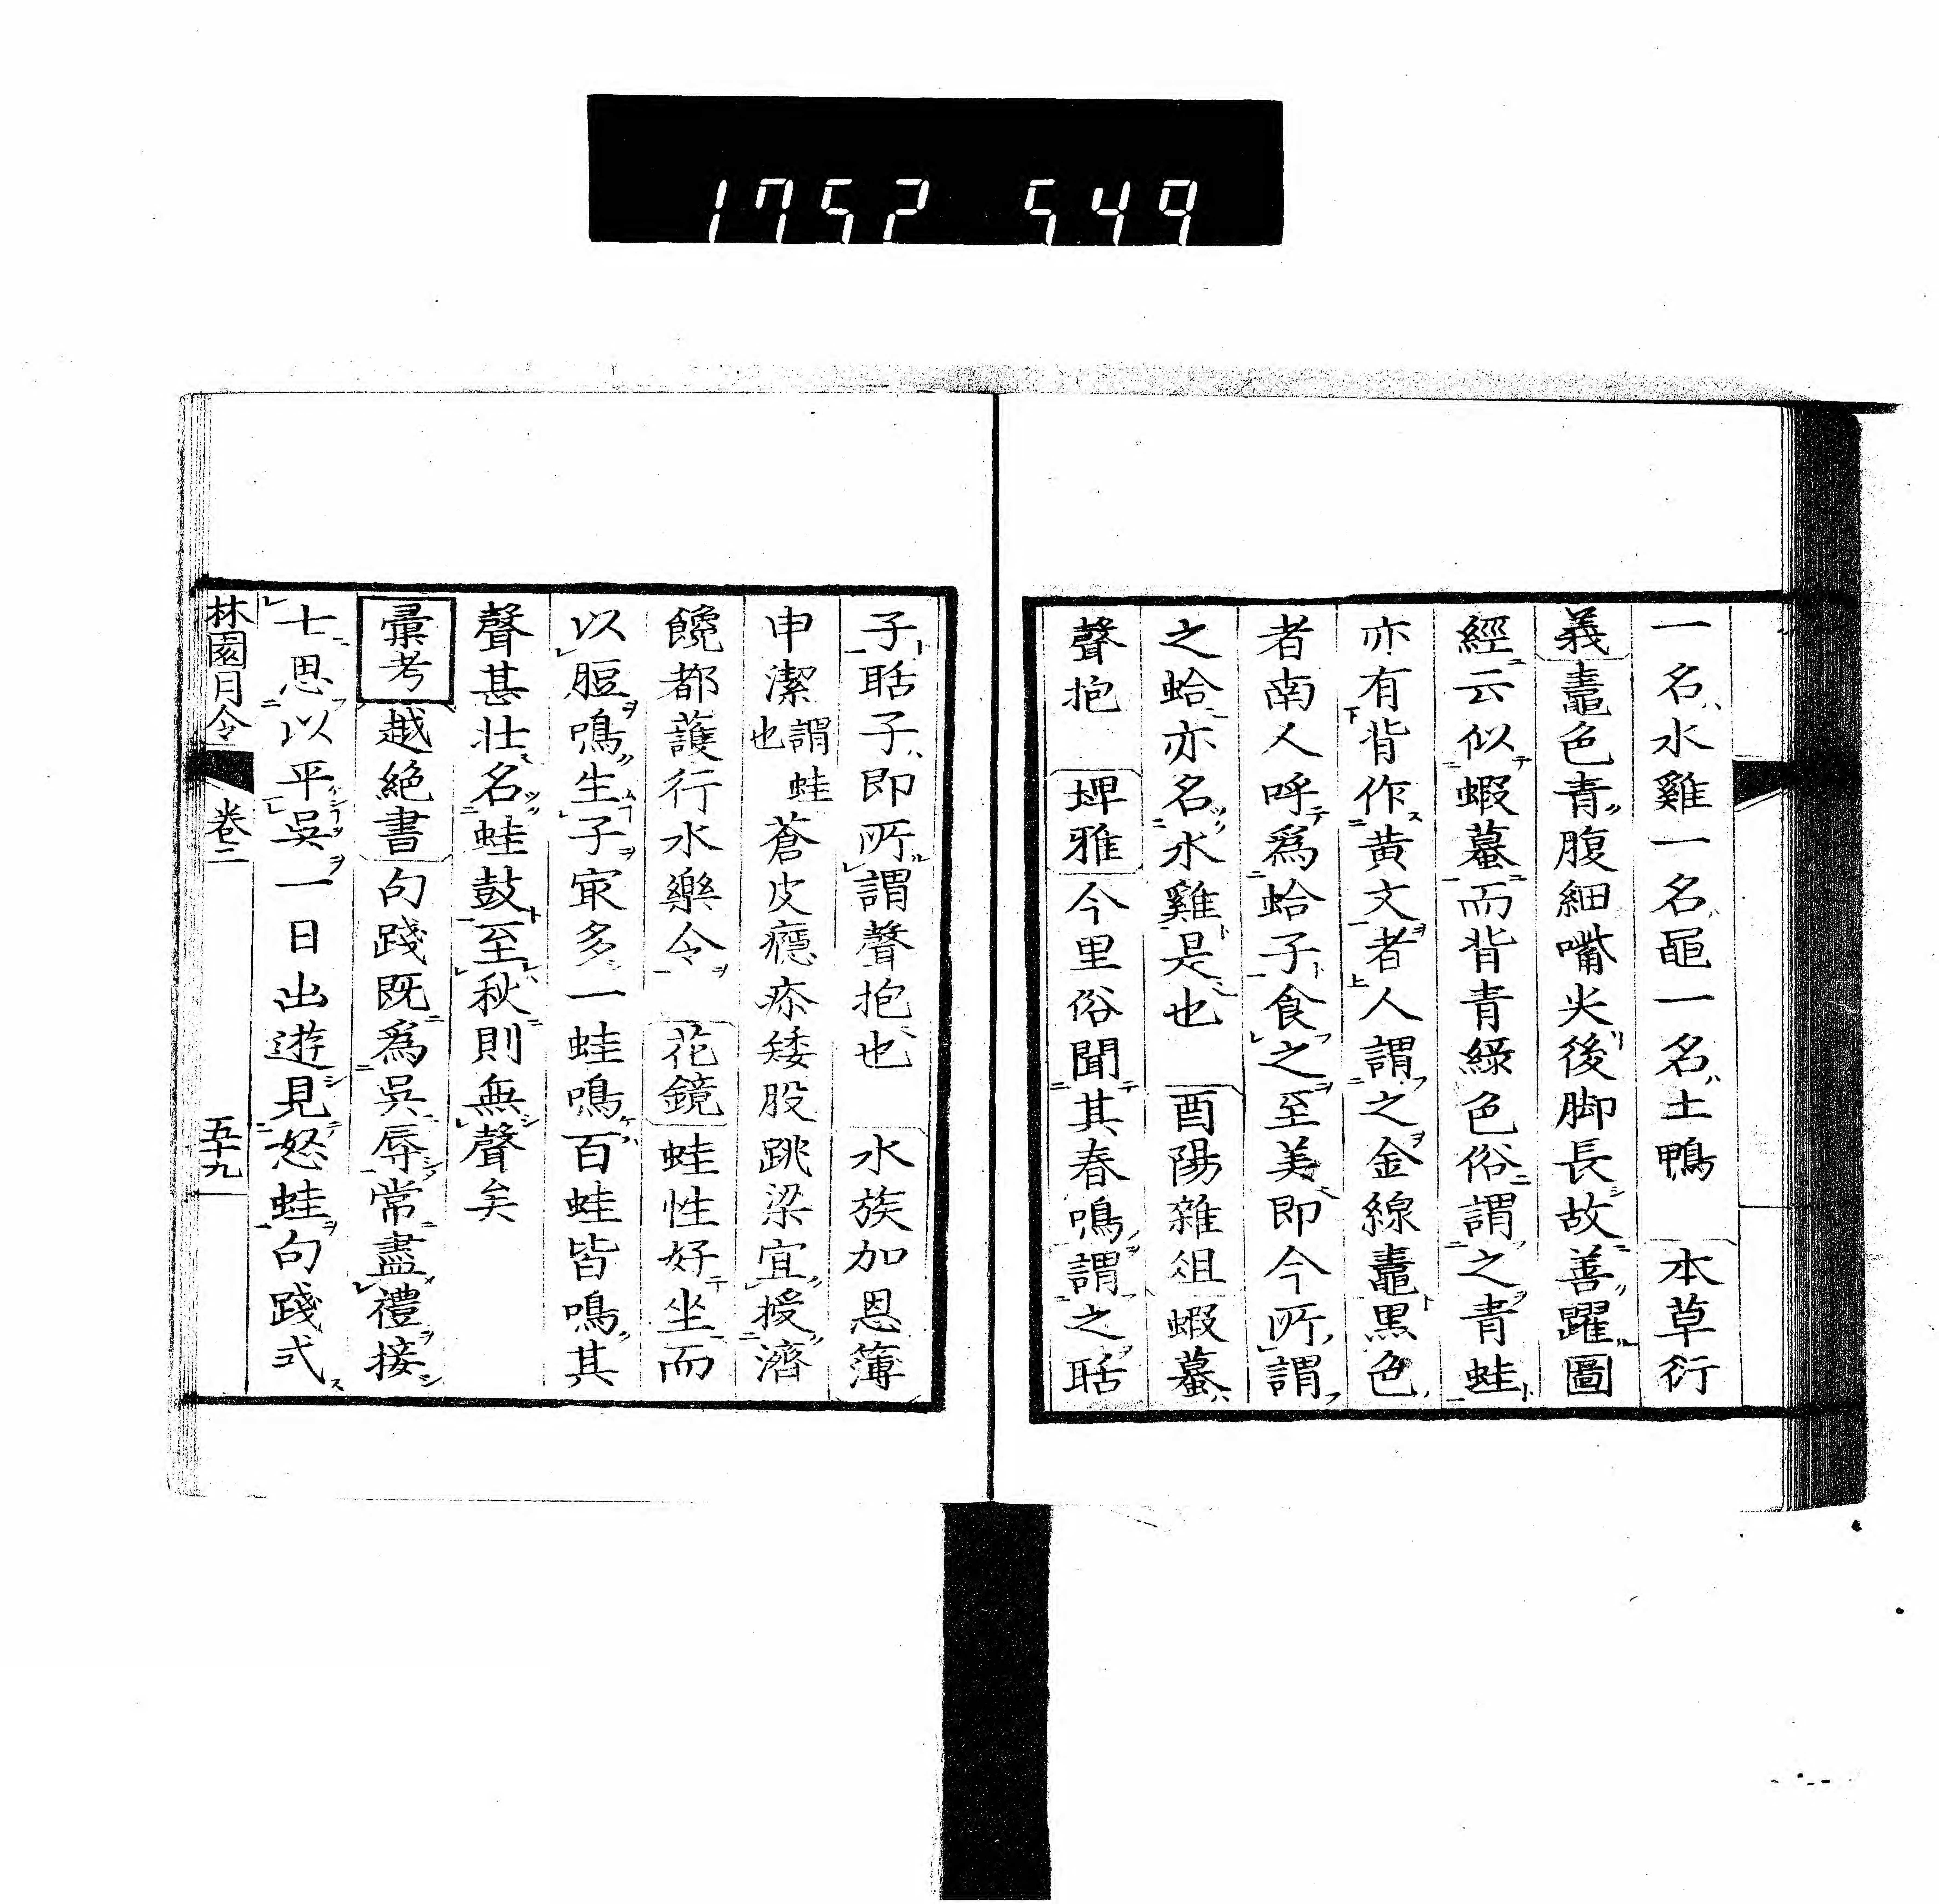 1752 549
一名水雞一名黽一名土鴨　本草衍
義鼃色青腹細嘴尖後脚長故善躍圖
經云似蝦蟇而背青綠色俗謂之青蛙
亦有背作黃文者人謂之金線鼃黑色
者南人呼爲蛤子食之至美即今所謂
之蛤亦名水雞是也　酉陽雜俎蝦蟇
聲抱　埤雅今里俗聞其春鳴謂之聒
子聒子即所謂聲抱也　水族加恩簿
申潔謂蛙也　蒼皮癮疹矮股跳梁宜授濟
饞都護行水樂令　花鏡蛙性好坐而
以脰鳴生子㝡多一蛙鳴百蛙皆鳴其
聲甚壯名蛙鼓至秋則無聲矣
彙考越絕書句踐既爲吳辱常盡禮接
士思以平吳一日出遊見怒蛙句踐式
林園月令　卷二　五十九